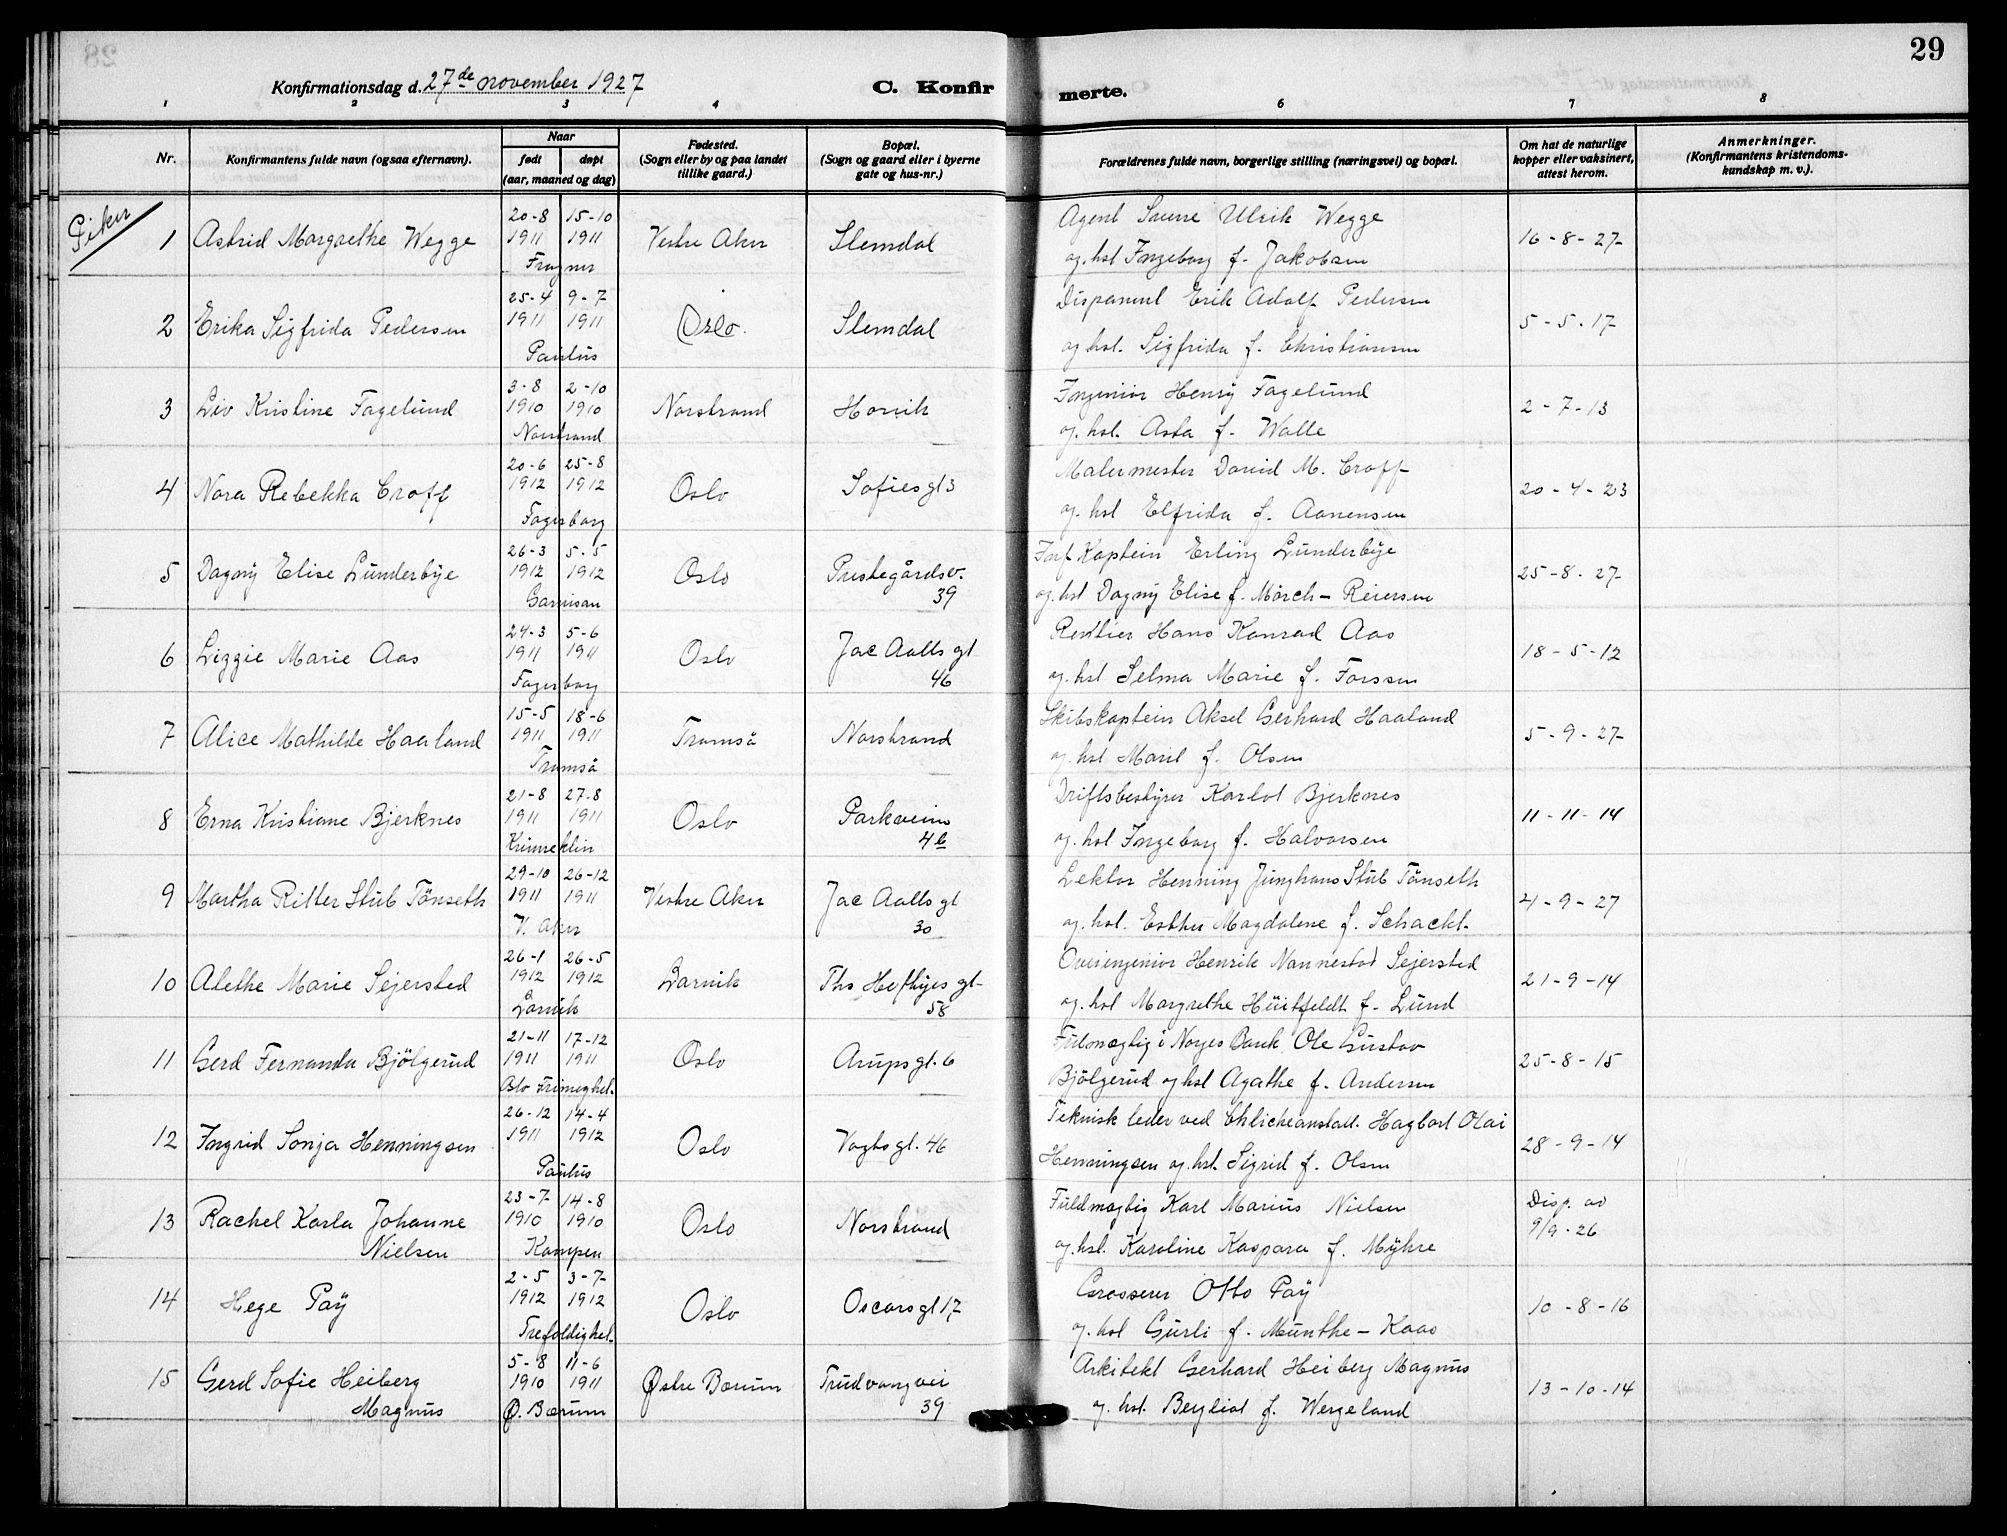 29
Konfirmationsdag d. 27de november 1927
C. Konfirmerte.
1 2 3 4 5 6 7 8
Nr.
Konfirmantens fulde navn (ogsaa efternavn).
Naar
født
døpt
(aar, maaned og dag)
Fødested.
(Sogn eller by og paa landet
tillike gaard.)
Bopæl.
(Sogn og gaard eller i byerne
gate og hus-nr.)
Forældrenes fulde navn, borgerlige stilling (næringsvei) og bopæl.
Om hat de naturlige
kopper eller vaksinert,
attest herom.
Anmerkninger.
(Konfirmantens kristendoms-
kundskap m. v.).
Piker
1 Astrid Margrethe Wegge
20-8 1911
15-10 1911
Frogner
Vestre Aker
Slemdal
Agent Sverre Ulrik Wegge
og hst Ingeborg f. Jakobsen
16-8-27
2 Erika Sigfrida Pedersen
25-4 1911
9-7 1911
Paulus
Oslo
Slemdal
Disponent Erik Adolf Pedersen
og hst. Sigfrida f. Christiansen
5-5-17
3 Liv Kristine Fagelund
3-8 1910
2-10 1910
Norstrand
Norstrand
Høvik
Ingeniør Henry Fagelund
og hst. Asta f. Walle
2-7-13
4 Nora Rebekka Croff
20-6 1912
25-8 1912
Fagerborg
Oslo
Sofiesgt 3
Malermester David M. Croff
og hst Elfrida f. Aanensen
20-4-23
5 Dagny Elise Lunderbye
26-3 1912
5-5 1912
Garnison
Oslo
Prestegårdsv.
39
Kaptein Erling Lunderbye
og hst Dagny Elise f. Mörch-Reiersen
25-8-27
6 Lizzie Marie Aas
24-3 1911
5-6 1911
Fagerborg
Oslo
Jac Aalls gt
46
Rentier Hans Konrad Aas
og hst Selma Marie f. Forssen
18-5-12
7 Alice Mathilde Haaland
15-5 1911
18-6 1911
Tromsö
Tromsö
Norstrand
Skibskaptein Aksel Gerhard Haaland
og hst Marit f. Olsen
5-9-27
8 Erna Kristiane Bjerknes
21-8 1911
27-8 1911
Oslo
Parkveien
4b
Driftsbestyrer Karlot Bjerknes
og hst Ingeborg f. Halvorsen
11-11-14
9 Martha Ritter Stub Tönseth
29-10 1911
26-12 1911
V. Aker
Vestre Aker
Jac Aalls gt
30
Lektor Henning Junghans Stub Tönseth
og hst. Esther Magdalene f. Schacht
4-9-27
10 Alethe Marie Sejersted
26-1 1912
26-5 1912
Larvik
Larvik
Ths Heftyes gt
58
Overingeniør Henrik Nannestad Sejersted
og hst Margrethe Hüitfeldt f. Lund
21-9-14
11 Gerd Fernanda Bjölgerud
21-11 1911
17-12 1911
Oslo Frimeghet.
Oslo
Arupsgt. 6
Fulmægtig i Norges Bank Ole Gustav
Bjölgerud og hst Agathe f. Andersen
25-8-15
12 Ingrid Sonja Henningsen
26-12 1911
14-4 1912
Paulus
Oslo
Vogtsgt. 46
Teknisk leder ved Chlicheanstalt. Hagbart Olai
Henningsen og hst. Sigrid f. Olsen
28-9-14
13 Rachel Karla Johanne
Nielsen
23-7 1910
14-8 1910
Kampen
Oslo
Norstrand
Fuldmægtig Karl Marius Nielsen
og hst. Karoline Kaspara f. Myhre
Disp. av
9/9-26
14 Hege Paÿ
2-5 1912
3-7 1912
Trefoldighet.
Oslo
Oscarsgt 17
Grosserer Otto Paÿ
og hst Gurli f. Munthe-Kaas
10-8-16
15 Gerd Sofie Heiberg
Magnus
5-8 1910
11-6 1911
Ø. Bærum
Østre Bærum
Trudvangvei
39
Arkitekt Gerhard Heiberg Magnus
og hst. Bergliot f. Wergeland
13-10-14